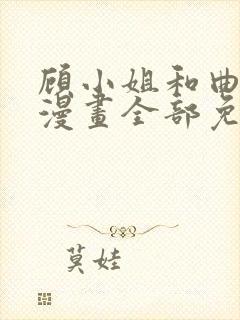 顾小姐和曲
漫畫全部免
莫娃